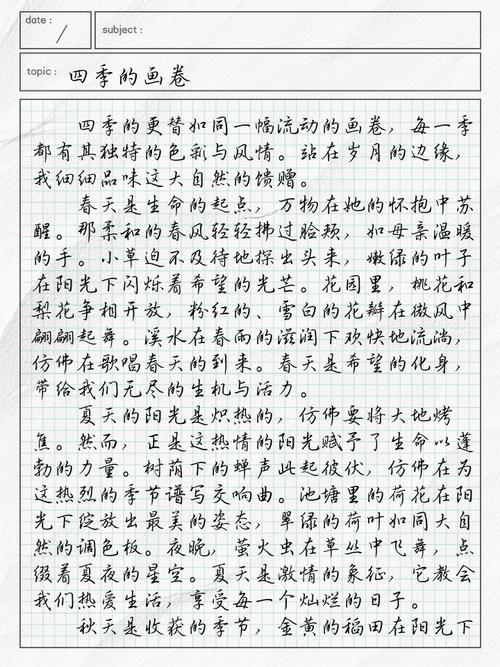 date :
subject :
topic : 四季的画卷
四季的更替如同一幅流动的画卷，每一季
都有其独特的色彩与风情。站在岁月的边缘，
我细细品味这大自然的馈赠。
春天是生命的起点，万物在她的怀抱中苏
醒。那柔和的春风轻轻拂过脸颊，如母亲温暖
的手。小草迫不及待地探出头来，嫩绿的叶子
在阳光下闪烁着希望的光芒。花园里，桃花和
梨花争相开放，粉红的、雪白的花瓣在微风中
翩翩起舞。溪水在春雨的滋润下欢快地流淌，
仿佛在歌唱春天的到来。春天是希望的化身，
带给我们无尽的生机与活力。
夏天的阳光是炽热的，仿佛要将大地烤
焦。然而，正是这热情的阳光赋予了生命以蓬
勃的力量。树荫下的蝉声此起彼伏，仿佛在为
这热烈的季节谱写交响曲。池塘里的荷花在阳
光下绽放出最美的姿态，翠绿的荷叶如同大自
然的调色板。夜晚，萤火虫在草丛中飞舞，点
缀着夏夜的星空。夏天是激情的象征，它教会
我们热爱生活，享受每一个灿烂的日子。
秋天是收获的季节，金黄的稻田在阳光下